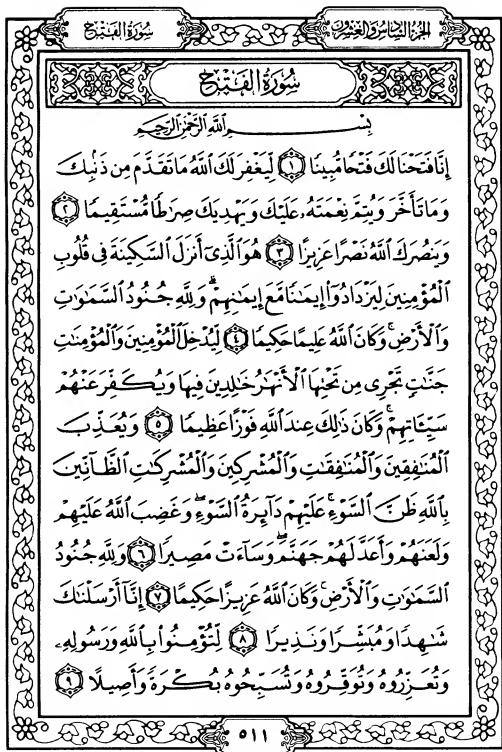 سُورَةُ الفَتْحِ
الجُزْءُ السَّادِسُ وَالعِشْرُونَ
سُورَةُ الفَتْحِ
بِسْمِ اللَّهِ الرَّحْمَٰنِ الرَّحِيمِ
إِنَّا فَتَحْنَا لَكَ فَتْحًا مُّبِينًا ١ لِّيَغْفِرَ لَكَ اللَّهُ مَا تَقَدَّمَ مِن ذَنۢبِكَ
وَمَا تَأَخَّرَ وَيُتِمَّ نِعْمَتَهُۥ عَلَيْكَ وَيَهْدِيَكَ صِرَٰطًا مُّسْتَقِيمًا ٢
وَيَنصُرَكَ اللَّهُ نَصْرًا عَزِيزًا ٣ هُوَ الَّذِىٓ أَنزَلَ السَّكِينَةَ فِى قُلُوبِ
الْمُؤْمِنِينَ لِيَزْدَادُوٓا۟ إِيمَٰنًا مَّعَ إِيمَٰنِهِمْ ۗ وَلِلَّهِ جُنُودُ السَّمَٰوَٰتِ
وَالْأَرْضِ ۚ وَكَانَ اللَّهُ عَلِيمًا حَكِيمًا ٤ لِّيُدْخِلَ الْمُؤْمِنِينَ وَالْمُؤْمِنَٰتِ
جَنَّٰتٍ تَجْرِى مِن تَحْتِهَا الْأَنْهَٰرُ خَٰلِدِينَ فِيهَا وَيُكَفِّرَ عَنْهُمْ
سَيِّـَٔاتِهِمْ ۚ وَكَانَ ذَٰلِكَ عِندَ اللَّهِ فَوْزًا عَظِيمًا ٥ وَيُعَذِّبَ
الْمُنَٰفِقِينَ وَالْمُنَٰفِقَٰتِ وَالْمُشْرِكِينَ وَالْمُشْرِكَٰتِ الظَّآنِّينَ
بِاللَّهِ ظَنَّ السَّوْءِ ۚ عَلَيْهِمْ دَآئِرَةُ السَّوْءِ ۖ وَغَضِبَ اللَّهُ عَلَيْهِمْ
وَلَعَنَهُمْ وَأَعَدَّ لَهُمْ جَهَنَّمَ ۖ وَسَآءَتْ مَصِيرًا ٦ وَلِلَّهِ جُنُودُ
السَّمَٰوَٰتِ وَالْأَرْضِ ۚ وَكَانَ اللَّهُ عَزِيزًا حَكِيمًا ٧ إِنَّآ أَرْسَلْنَٰكَ
شَٰهِدًا وَمُبَشِّرًا وَنَذِيرًا ٨ لِّتُؤْمِنُوا۟ بِاللَّهِ وَرَسُولِهِۦ
وَتُعَزِّرُوهُ وَتُوَقِّرُوهُ وَتُسَبِّحُوهُ بُكْرَةً وَأَصِيلًا ٩
٥١١